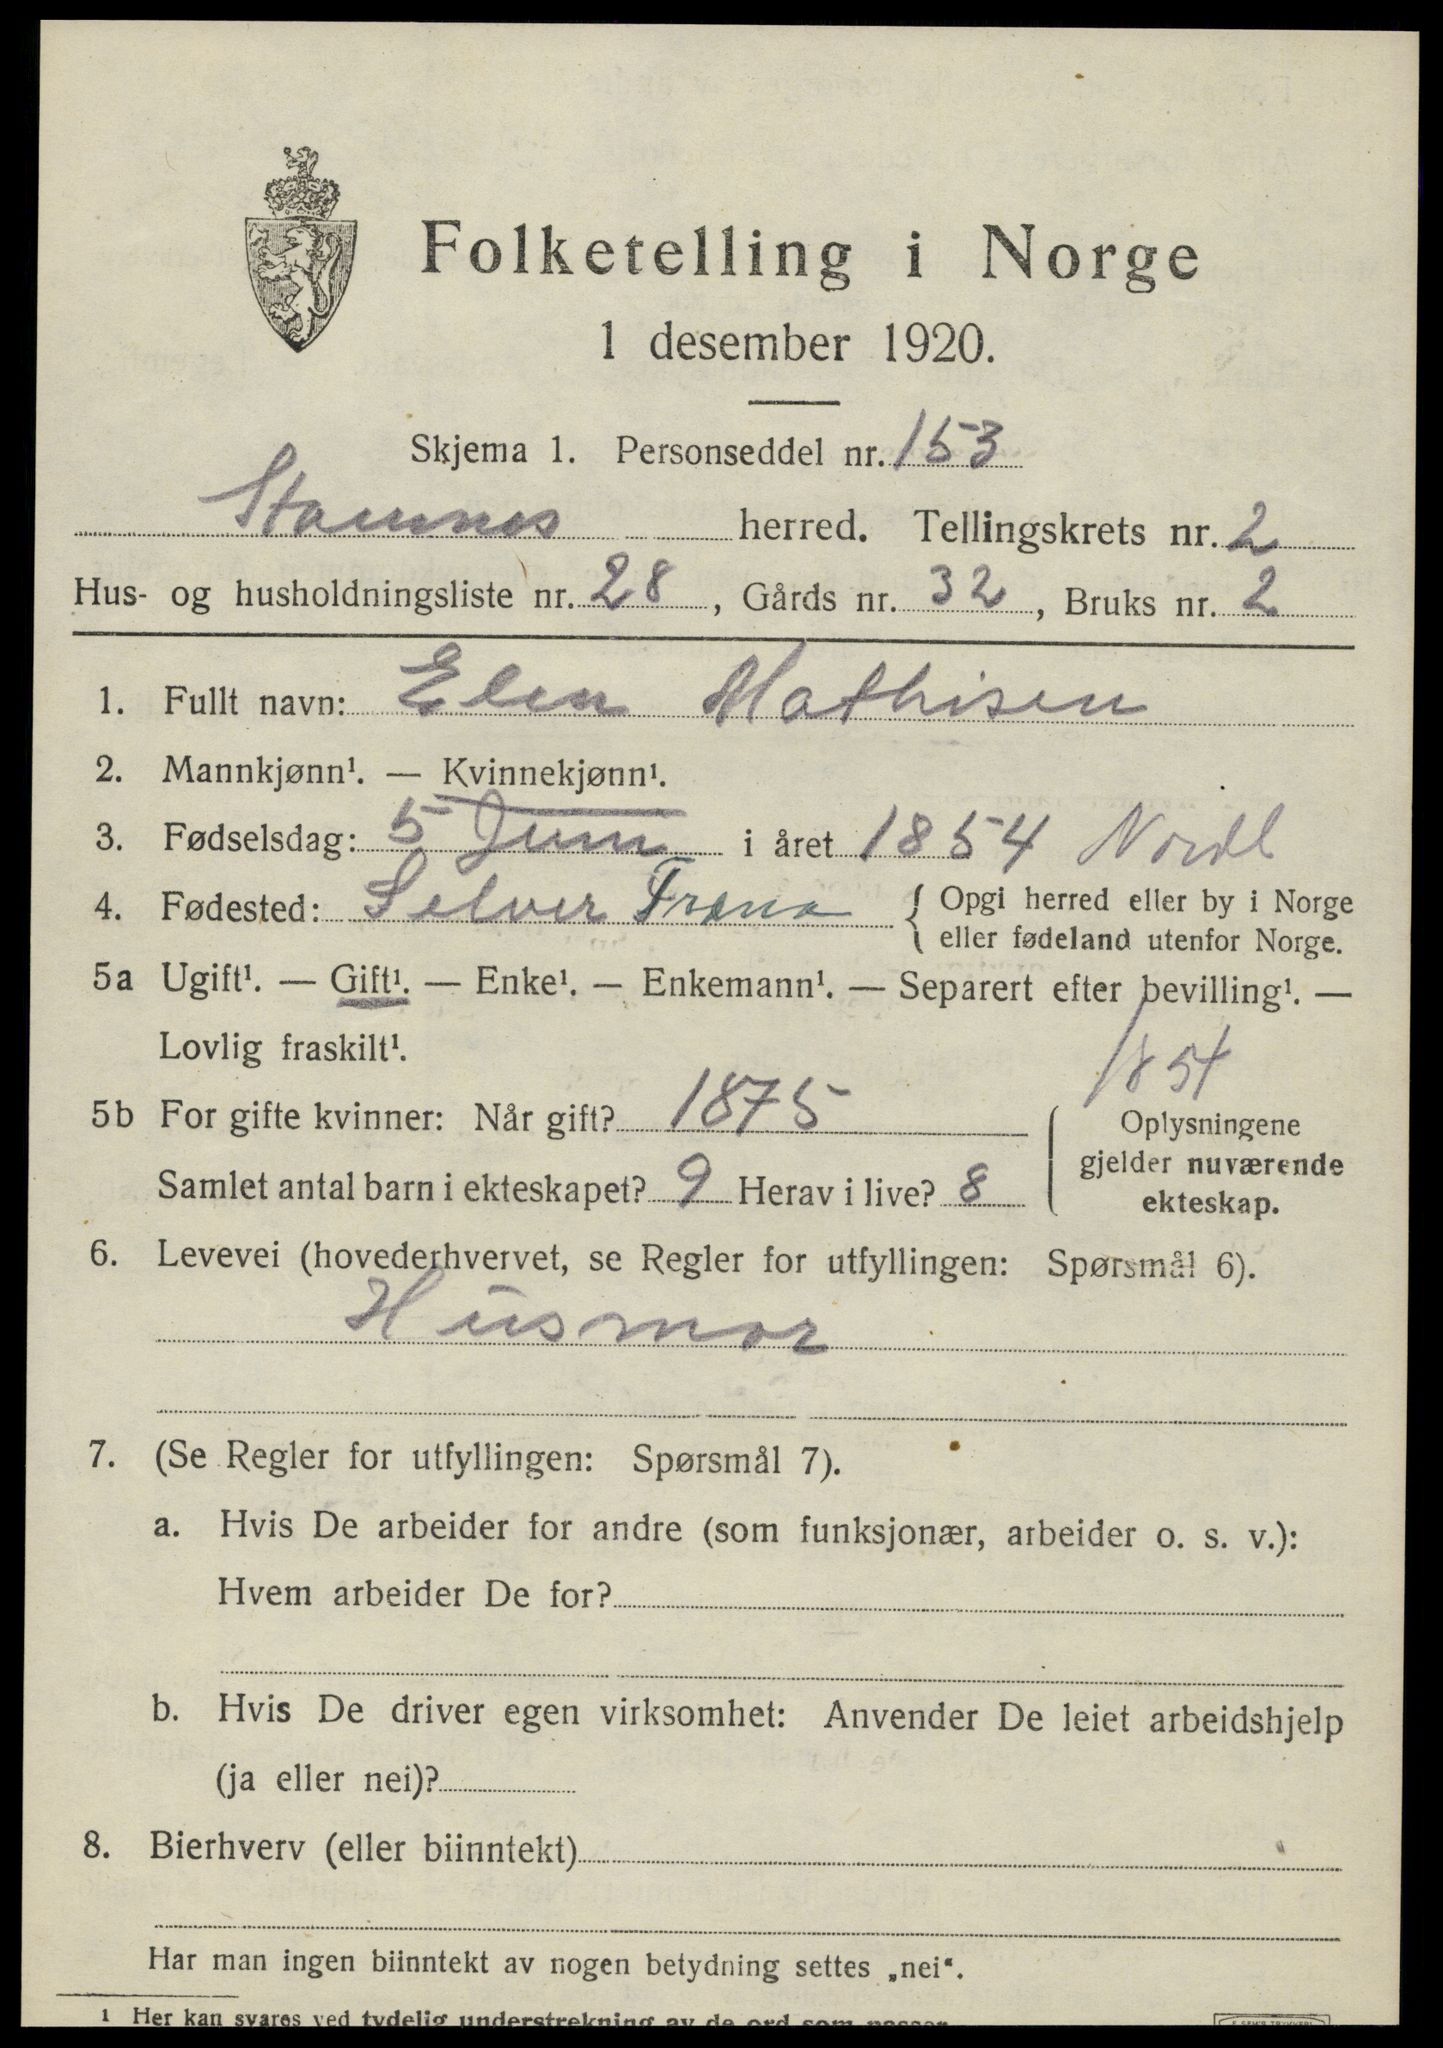 Folketelling i Norge
1 desember 1920.
Skjema 1. Personseddel nr. 153
Stamnes herred. Tellingskrets nr. 2
Hus- og husholdningsliste nr. 28, Gårds nr. 32, Bruks nr. 2
1. Fullt navn: Elen Mathisen
2. Mannkjønn¹. — Kvinnekjønn¹.
3. Fødselsdag: 5 Juni i året 1854 Nordl
4. Fødested: Selver Træna { Opgi herred eller by i Norge
eller fødeland utenfor Norge.
5a Ugift¹. — Gift¹. — Enke¹. — Enkemann¹. — Separert efter bevilling¹. —
Lovlig fraskilt¹.
1854
5b For gifte kvinner: Når gift? 1875
Samlet antal barn i ekteskapet? 9 Herav i live? 8
Oplysningene
gjelder nuværende
ekteskap.
6. Levevei (hovederhvervet, se Regler for utfyllingen: Spørsmål 6).
Husmor
7. (Se Regler for utfyllingen: Spørsmål 7).
a. Hvis De arbeider for andre (som funksjonær, arbeider o. s. v.):
Hvem arbeider De for?
b. Hvis De driver egen virksomhet: Anvender De leiet arbeidshjelp
(ja eller nei)?
8. Bierhverv (eller biinntekt)
Har man ingen biinntekt av nogen betydning settes „nei“.
1 Her kan svares ved tydelig understrekning av de ord som passer.